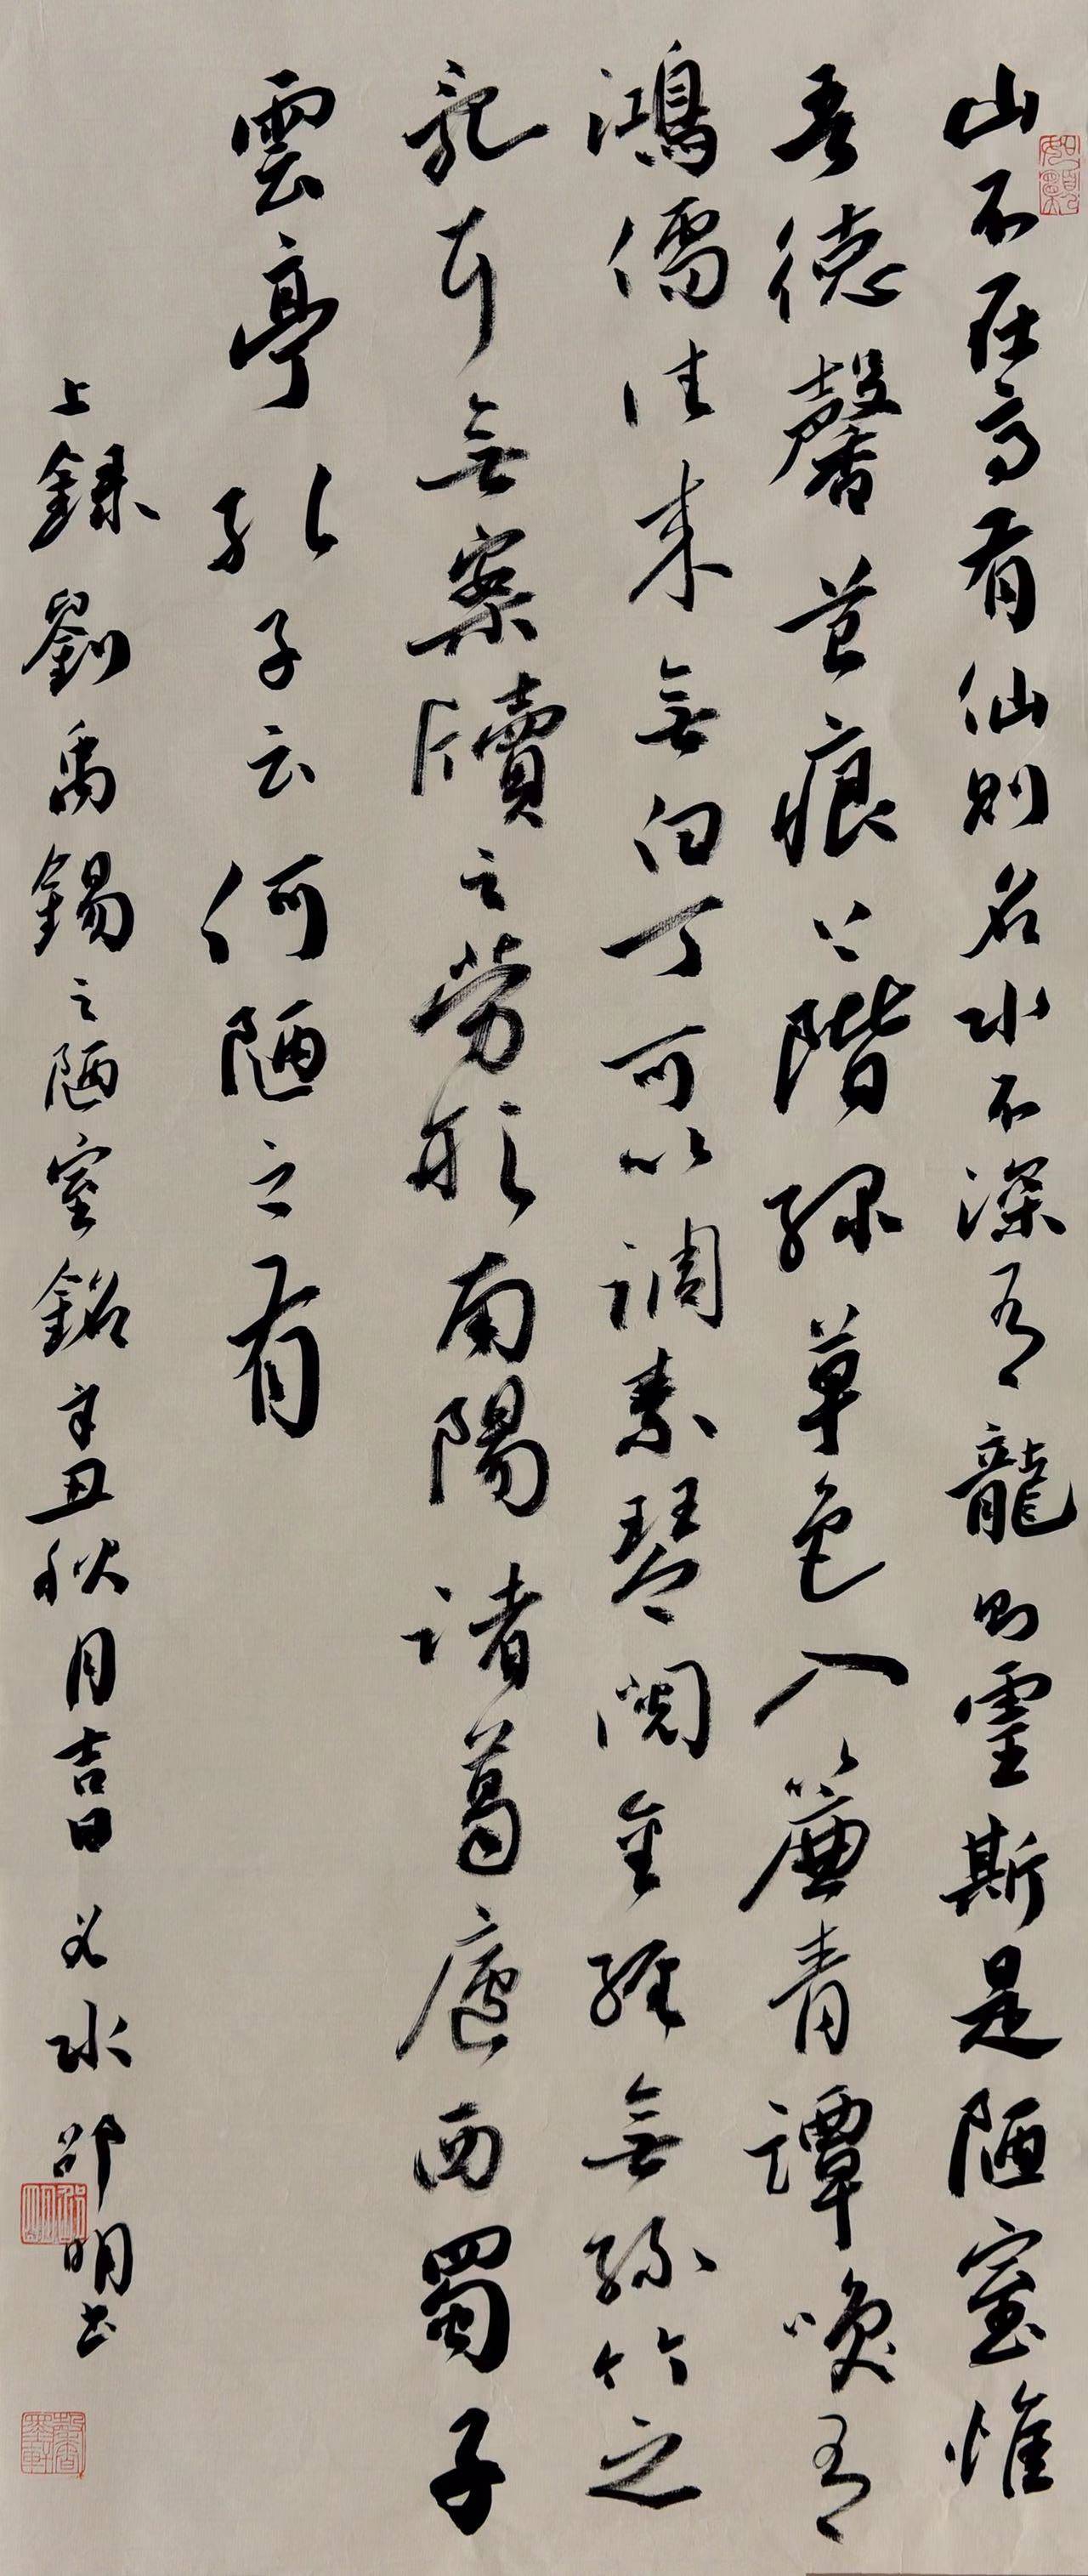 山不在高有仙则名水不深有龍则靈斯是陋室惟
吾德馨苔痕上階緑草色入簾青譚笑有
鴻儒往来無白丁可以調素琴閲金經無絲竹之
亂耳無案牘之劳形南陽诸葛廬西蜀子
雲亭孔子云何陋之有
上録劉禹錫之陋室銘辛丑秋月吉日義水邵明书